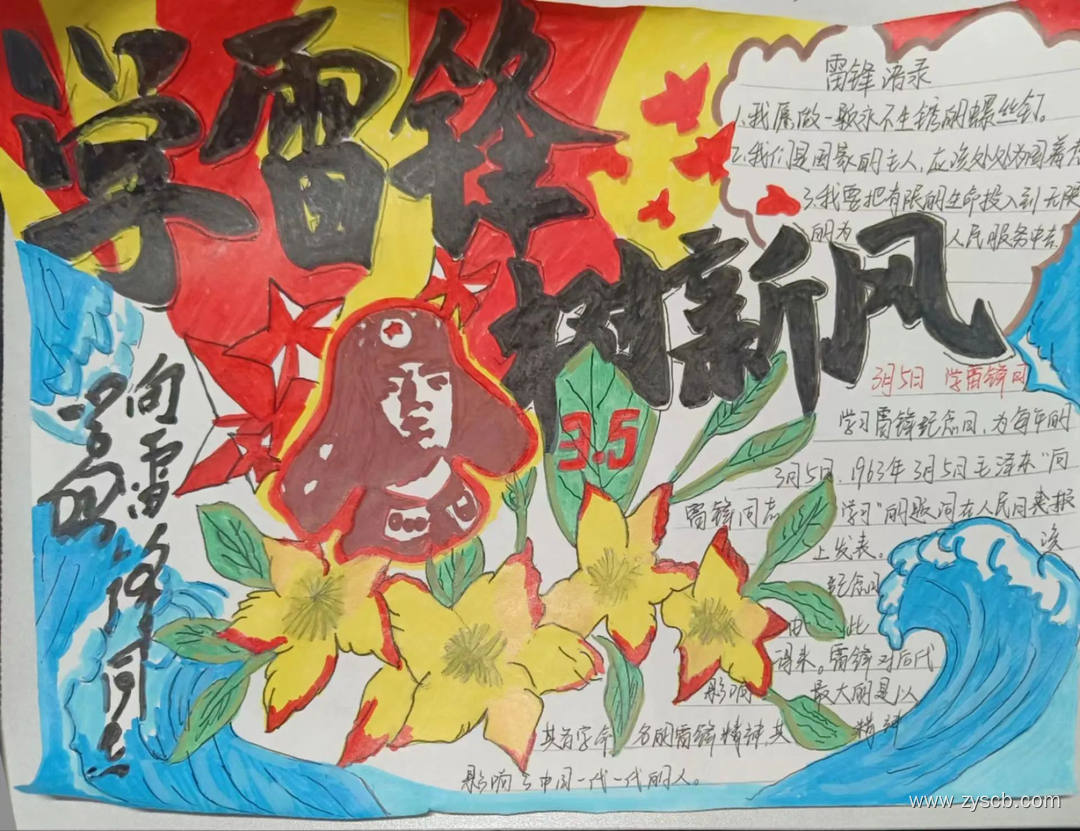 学雷锋
树新风
雷锋语录
1.我愿做一颗永不生锈的螺丝钉。
2.我们是国家的主人,应该处处为国着
3.我要把有限的生命投入到无限
的为 人民服务中去
向雷锋同志
学习
3.5
3月5日 学雷锋日
学习雷锋纪念日,为每年的
3月5日,1963年3月5日毛泽东"向
雷锋同志 学习"的题词在人民日报
上发表。 该
纪念日
由 此
得来。雷锋对后代
影响 最大的是以
其名字命 名的雷锋精神,其 精神
影响了中国一代一代的人。
www.zyscb.com